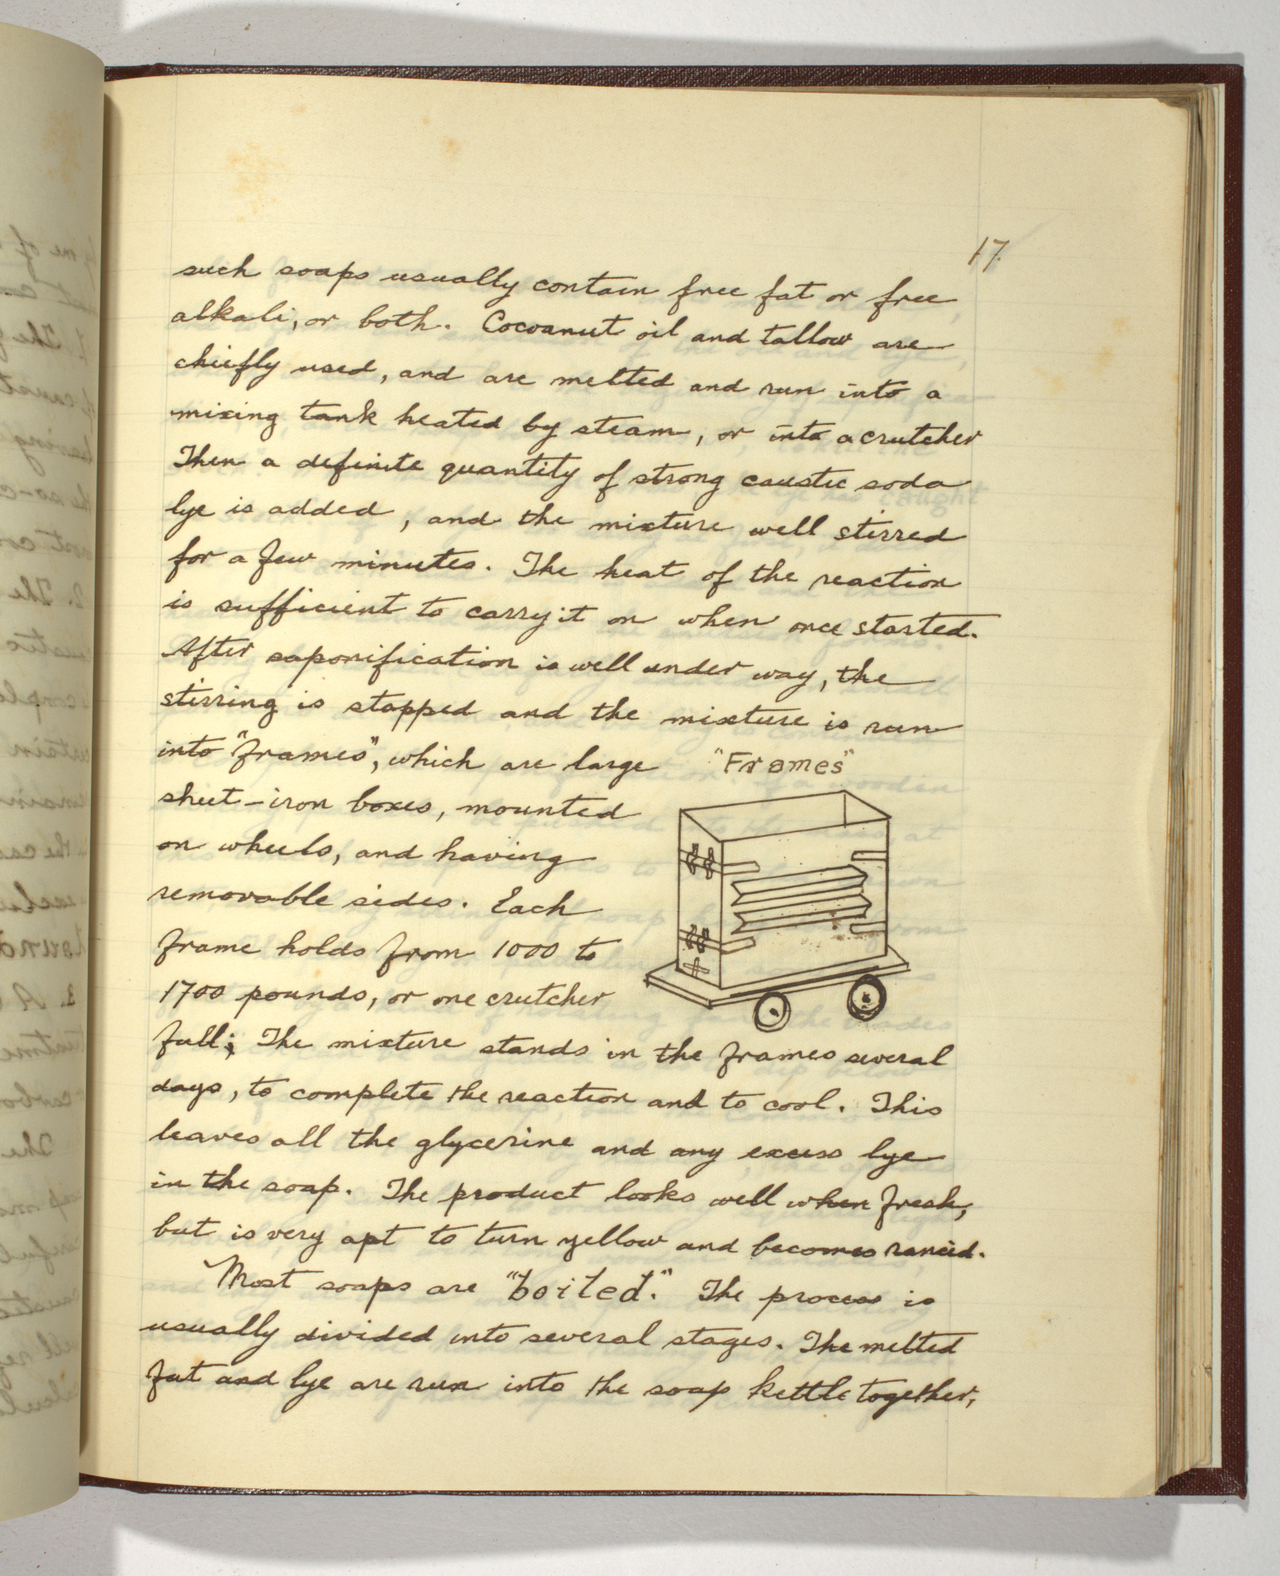 17.
such soaps usually contain free fat or free
alkali, or both. Cocoanut oil and tallow are
chiefly used, and are melted and run into a
mixing tank heated by steam, or into a crutcher
Then a definite quantity of strong caustic soda
lye is added, and the mixture well stirred
for a few minutes. The heat of the reaction
is sufficient to carry it on when once started.
After saponification is well under way, the
stirring is stopped and the mixture is run
into "frames", which are large
"Frames"
sheet-iron boxes, mounted
on wheels, and having
removable sides. Each
frame holds from 1000 to
1700 pounds, or one crutcher
full; The mixture stands in the frames several
days, to complete the reaction and to cool. This
leaves all the glycerine and any excess lye
in the soap. The product looks well when fresh,
but is very apt to turn yellow and becomes rancid.
Most soaps are "boiled." The process is
usually divided into several stages. The melted
fat and lye are run into the soap kettle together,